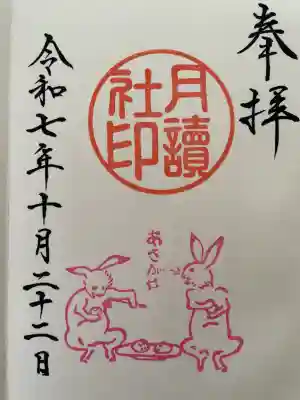 奉拝
月讀
社印
あさがほ
令和七年十月二十二日